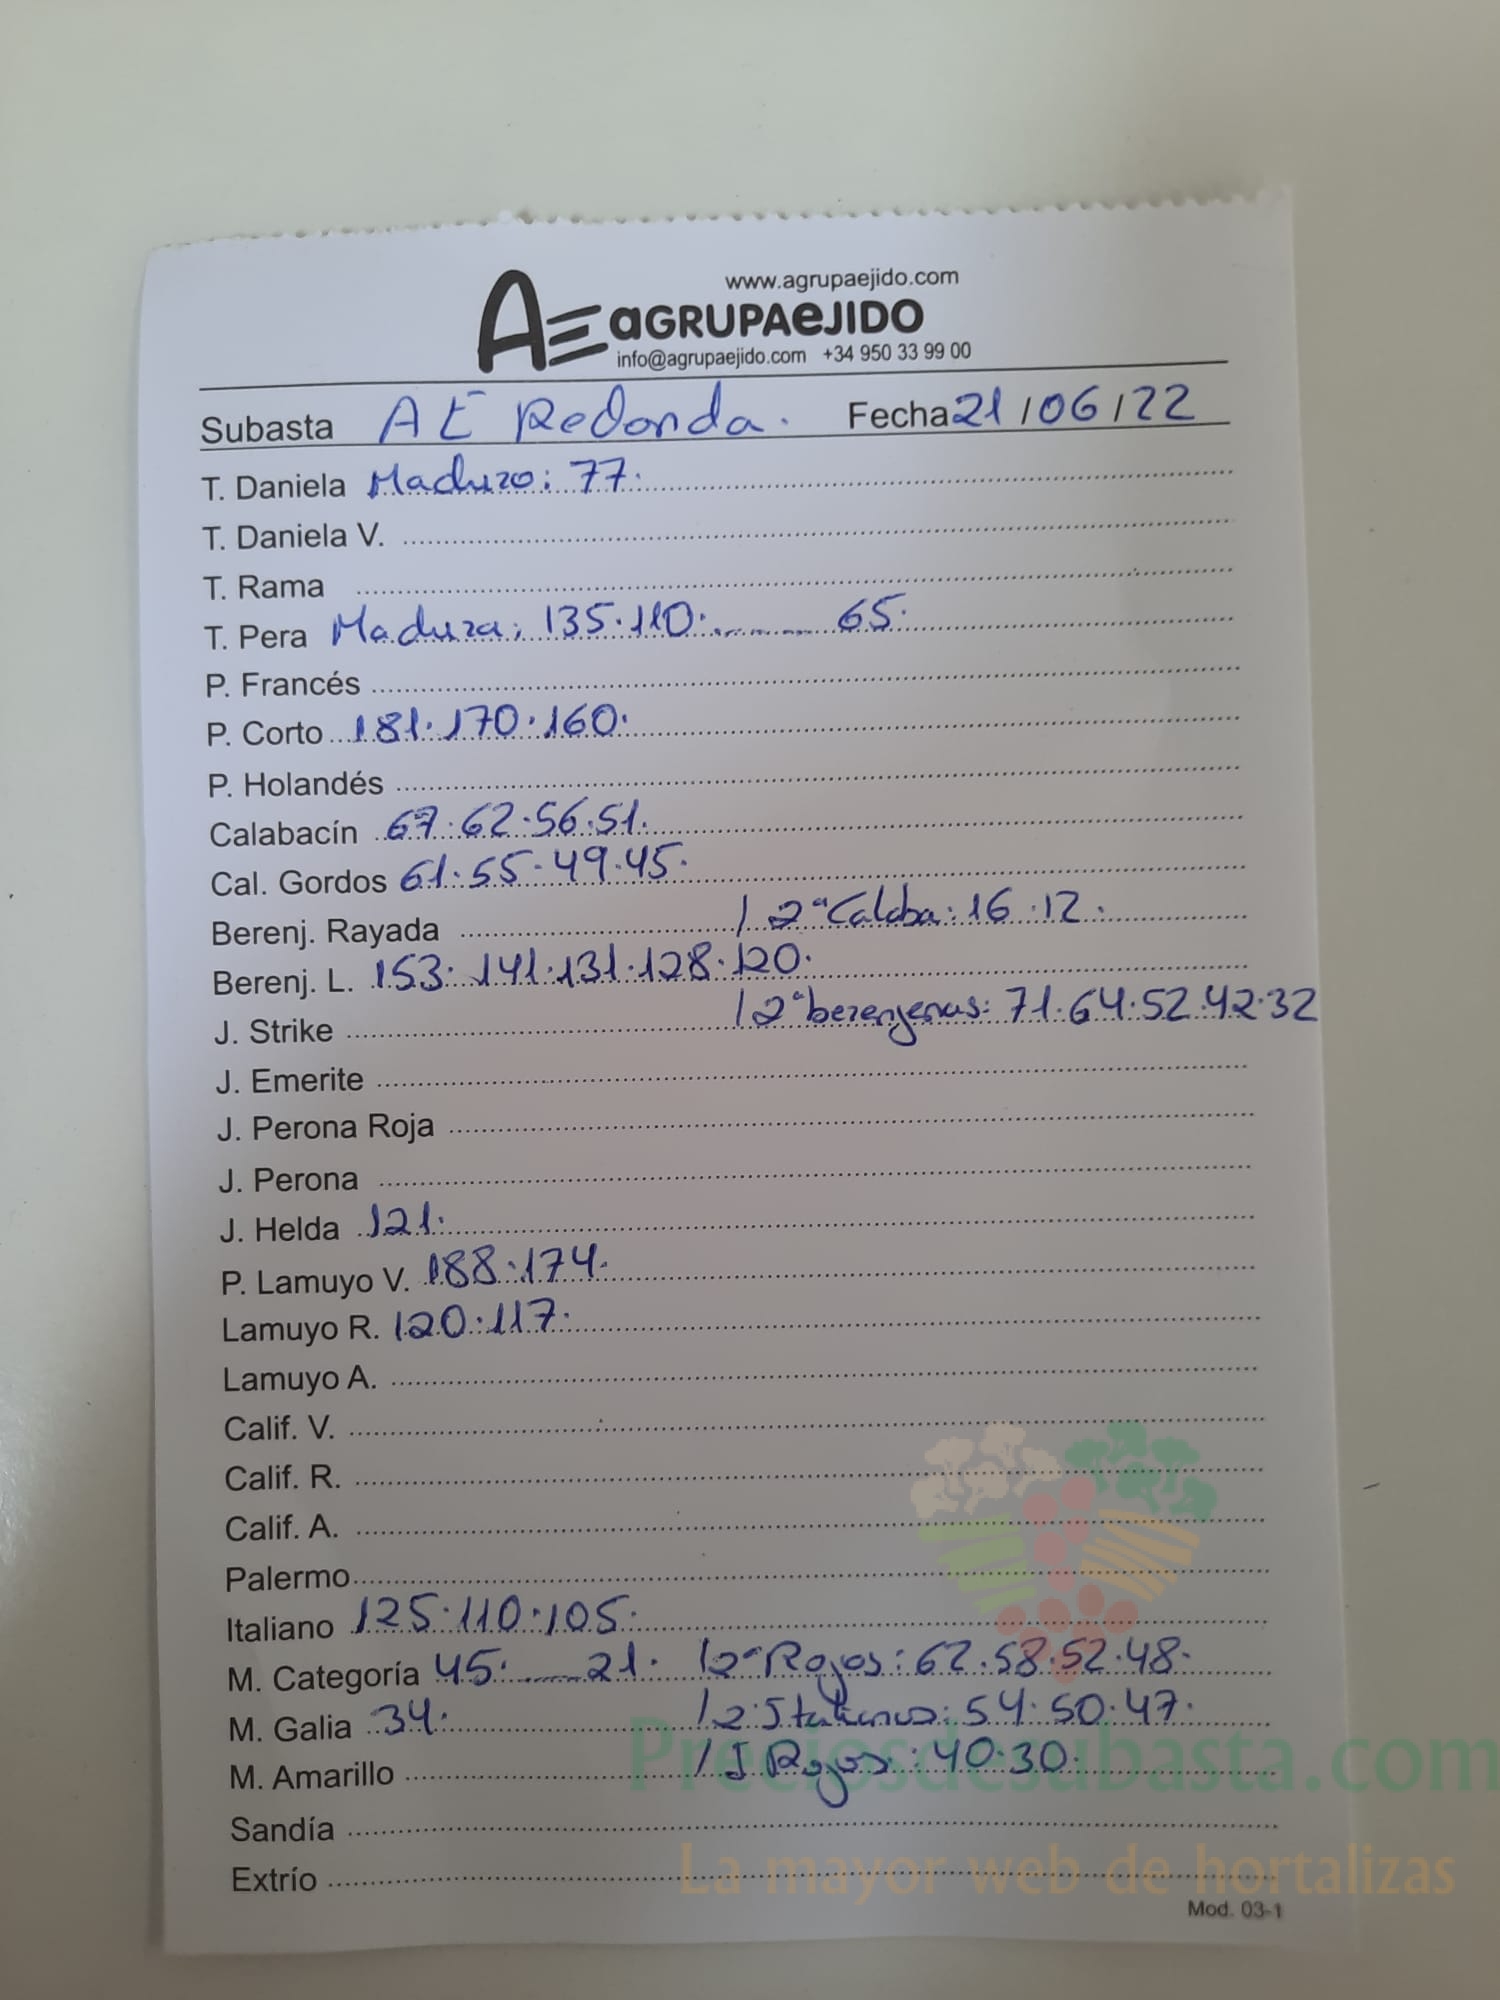 www.agrupaejido.com
AE aGRUPAeJIDO
info@agrupaejido.com +34 950 33 99 00
Subasta AE Redonda. Fecha 21/06/22
T. Daniela Maduro: 77.
T. Daniela V.
T. Rama
T. Pera Madura: 135.110. ........ 65.
P. Francés
P. Corto 181.170.160.
P. Holandés
Calabacín 67.62.56.51.
Cal. Gordos 61.55.49.45.
Berenj. Rayada / 2ª Calaba: 16.12.
Berenj. L. 153.141.131.128.120.
J. Strike / 2ª berenjenas: 71.64.52.42.32
J. Emerite
J. Perona Roja
J. Perona
J. Helda 121.
P. Lamuyo V. 188.174.
Lamuyo R. 120.117.
Lamuyo A.
Calif. V.
Calif. R.
Calif. A.
Palermo
Italiano 125.110.105.
M. Categoría 45. ........ 21. / 2ª Rojos: 62.58.52.48.
M. Galia 34. / 2ª Italianos: 54.50.47.
M. Amarillo / I Rojos: 40.30.
Preciosdesubasta.com
Sandía
La mayor web de hortalizas
Extrío
Mod. 03-1